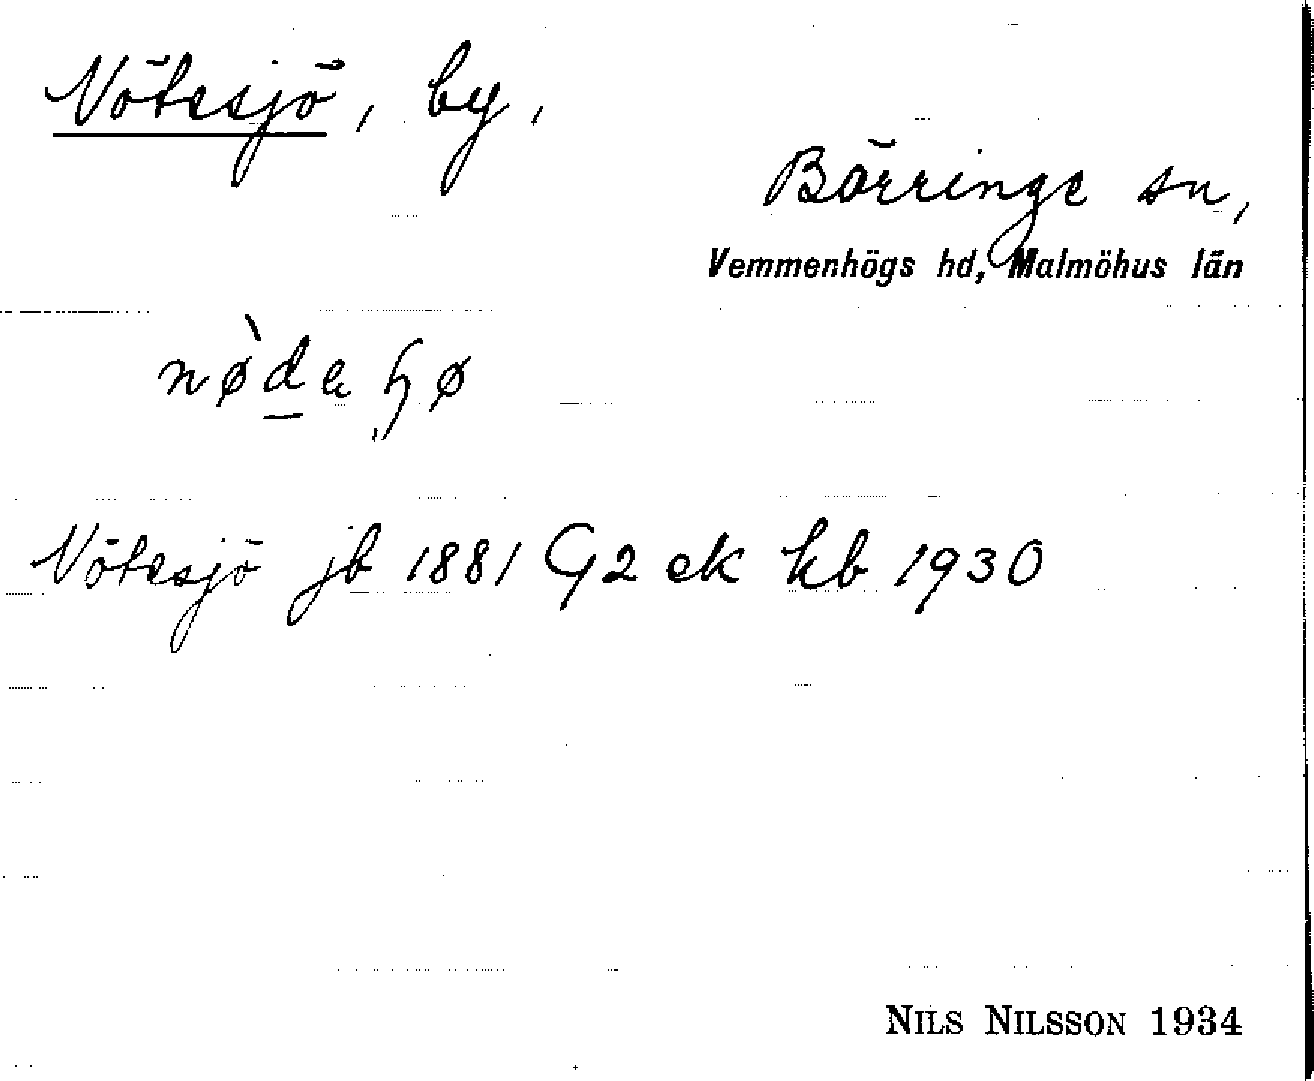 Nötesjö, by,
Börringe sn,
Vemmenhögs hd, Malmöhus län
Nötesjö jb 1881 G2 ek kb 1930
NILS NILSSON 1934